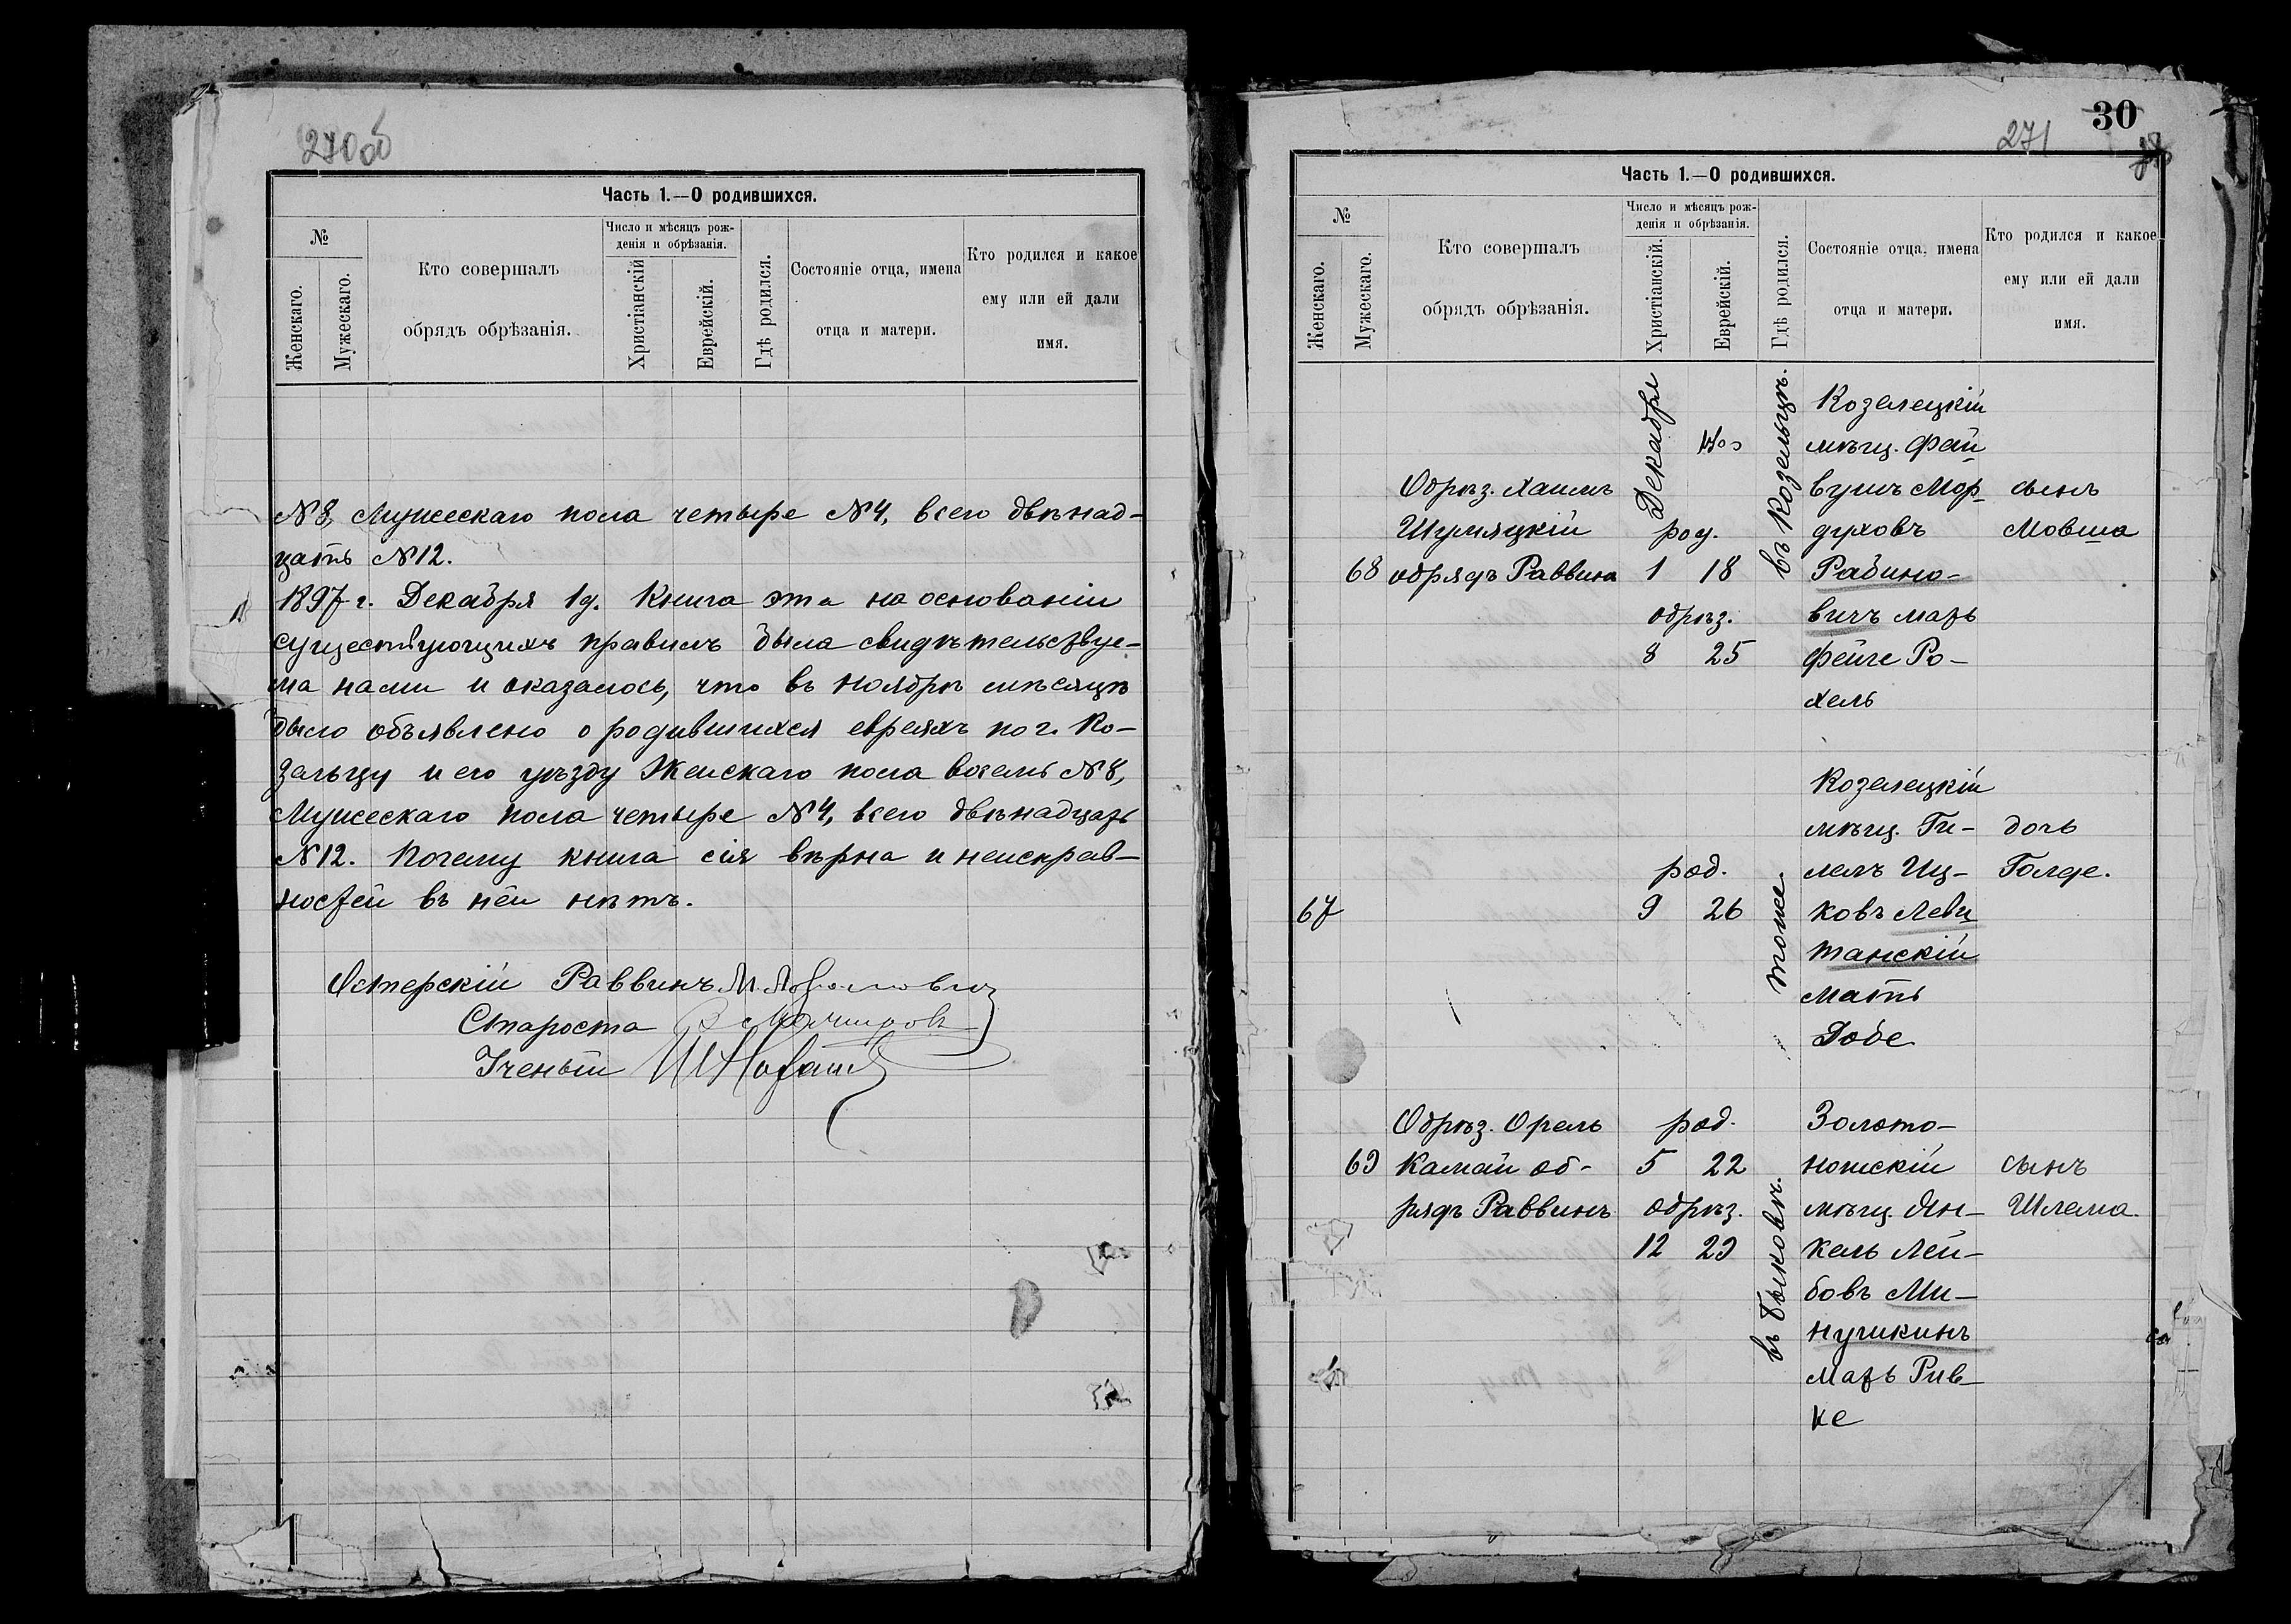 270 об
Часть 1.—О родившихся.
№
Женскаго.
Мужескаго.
Кто совершалъ
обрядъ обрѣзанія.
Число и мѣсяцъ рож-
денія и обрѣзанія.
Христіанскій
Еврейскій.
Гдѣ родился.
Состояніе отца, имена
отца и матери.
Кто родился и какое
ему или ей дали
имя.
№8, Мужескаго пола четыре №4, всего двѣнад-
цать №12.
1897 г. Декабря 1 д. Книга эта на основаніи
существующихъ правилъ была свидѣтельствуе-
ма нами и оказалось, что въ Ноябрѣ мѣсяцѣ
было объявлено о родившихся евреяхъ по г. Ко-
зельцу и его уѣзду Женскаго пола восемь №8,
Мужескаго пола четыре №4, всего двѣнадцать
№12. Почему книга сія вѣрна и неисправ-
ностей въ ней нѣтъ.
Остерскій Раввинъ М.
Староста
Ученый
30
271
Часть 1.—О родившихся.
№
Женскаго.
Мужескаго.
Кто совершалъ
обрядъ обрѣзанія.
Число и мѣсяцъ рож-
денія и обрѣзанія.
Христіанскій.
Еврейскій.
Гдѣ родился.
Состояніе отца, имена
отца и матери.
Кто родился и какое
ему или ей дали
имя.
68
Обрѣз. Хаимъ
Шумяцкій
обрядъ Раввина
Декабря
род.
1 18
обрѣз.
8 25
въ Козельцѣ.
Козелецкій
мѣщ. Фай
вушъ Мор-
духовъ
Рабино-
вичъ мать
Фейге Ро-
хель
сынъ
Мовша
67
род.
9 26
тоже
Козелецкій
мѣщ. Ги-
лелъ Иц-
ковъ Леви
танскій
мать
Добе
дочь
Голде.
69
Обрѣз. Орель
Камай об-
рядъ Раввинъ
род.
5 22
обрѣз.
12 29
въ Быковѣ.
Золото-
ношскій
мѣщ. Ян-
кель Лей-
бовъ Ми-
нушкинъ
мать Рив-
ке
сынъ
Шлема.